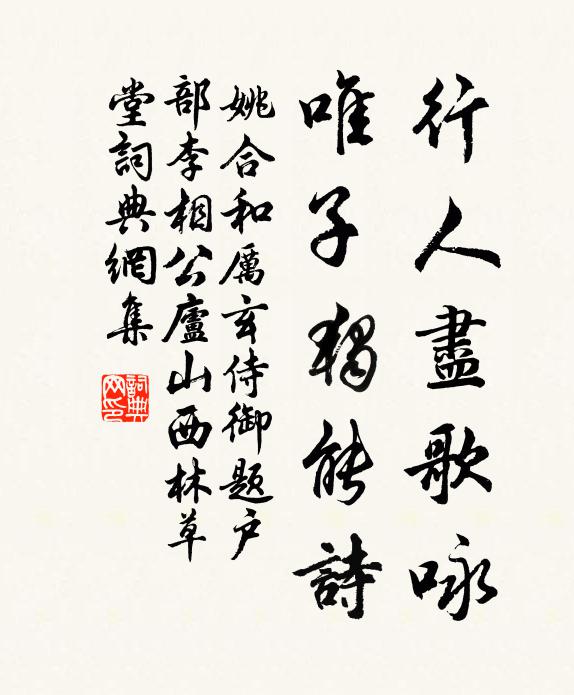 行人盡歌咏
唯子獨能詩
姚合和厲玄侍御題户
部李相公廬山西林草
堂詞典網集
詞典网印